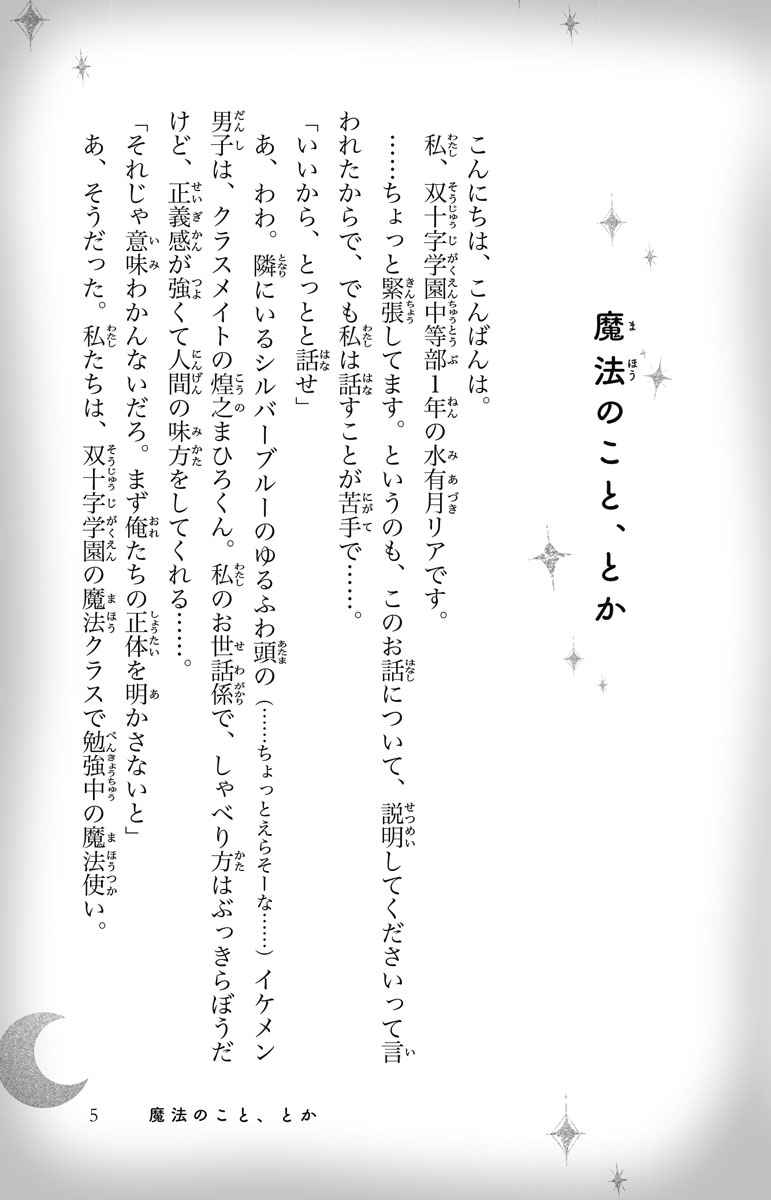 魔法のこと、とか
こんにちは、こんばんは。
私、双十字学園中等部1年の水有月リアです。
……ちょっと緊張してます。というのも、このお話について、説明してくださいって言
われたからで、でも私は話すことが苦手で……。
「いいから、とっとと話せ」
あ、わわ。隣にいるシルバーブルーのゆるふわ頭の(……ちょっとえらそーな……)イケメン
男子は、クラスメイトの煌之まひろくん。私のお世話係で、しゃべり方はぶっきらぼうだ
けど、正義感が強くて人間の味方をしてくれる……。
「それじゃ意味わかんないだろ。まず俺たちの正体を明かさないと」
あ、そうだった。私たちは、双十字学園の魔法クラスで勉強中の魔法使い。
5 魔法のこと、とか